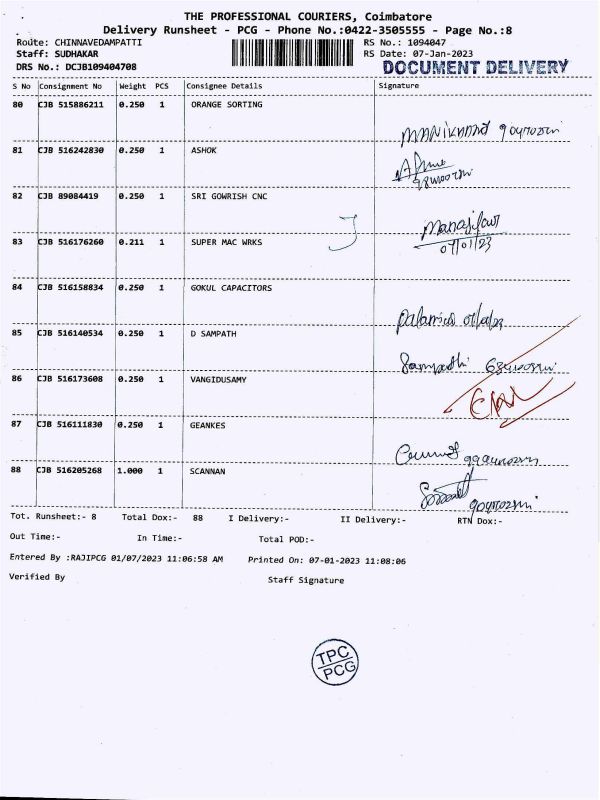 THE PROFESSIONAL COURIERS, Coimbatore
Delivery Runsheet - PCG - Phone No.:0422-3505555 - Page No.:8
Route: CHINNAVEDAMPATTI RS No.: 1094047
Staff: SUDHAKAR RS Date: 07-Jan-2023
DRS No.: DCJB109404708 DOCUMENT DELIVERY
S No Consignment No Weight PCS Consignee Details Signature
80 CJB 515886211 0.250 1 ORANGE SORTING
81 CJB 516242830 0.250 1 ASHOK
82 CJB 89084419 0.250 1 SRI GOWRISH CNC
07/01/23
83 CJB 516176260 0.211 1 SUPER MAC WRKS
84 CJB 516158834 0.250 1 GOKUL CAPACITORS
85 CJB 516140534 0.250 1 D SAMPATH
86 CJB 516173608 0.250 1 VANGIDUSAMY
87 CJB 516111830 0.250 1 GEANKES
88 CJB 516205268 1.000 1 SCANNAN
Tot. Runsheet:- 8 Total Dox:- 88 I Delivery:- II Delivery:- RTN Dox:-
Out Time:- In Time:- Total POD:-
Entered By :RAJIPCG 01/07/2023 11:06:58 AM Printed On: 07-01-2023 11:08:06
Verified By Staff Signature
TPC
PCG